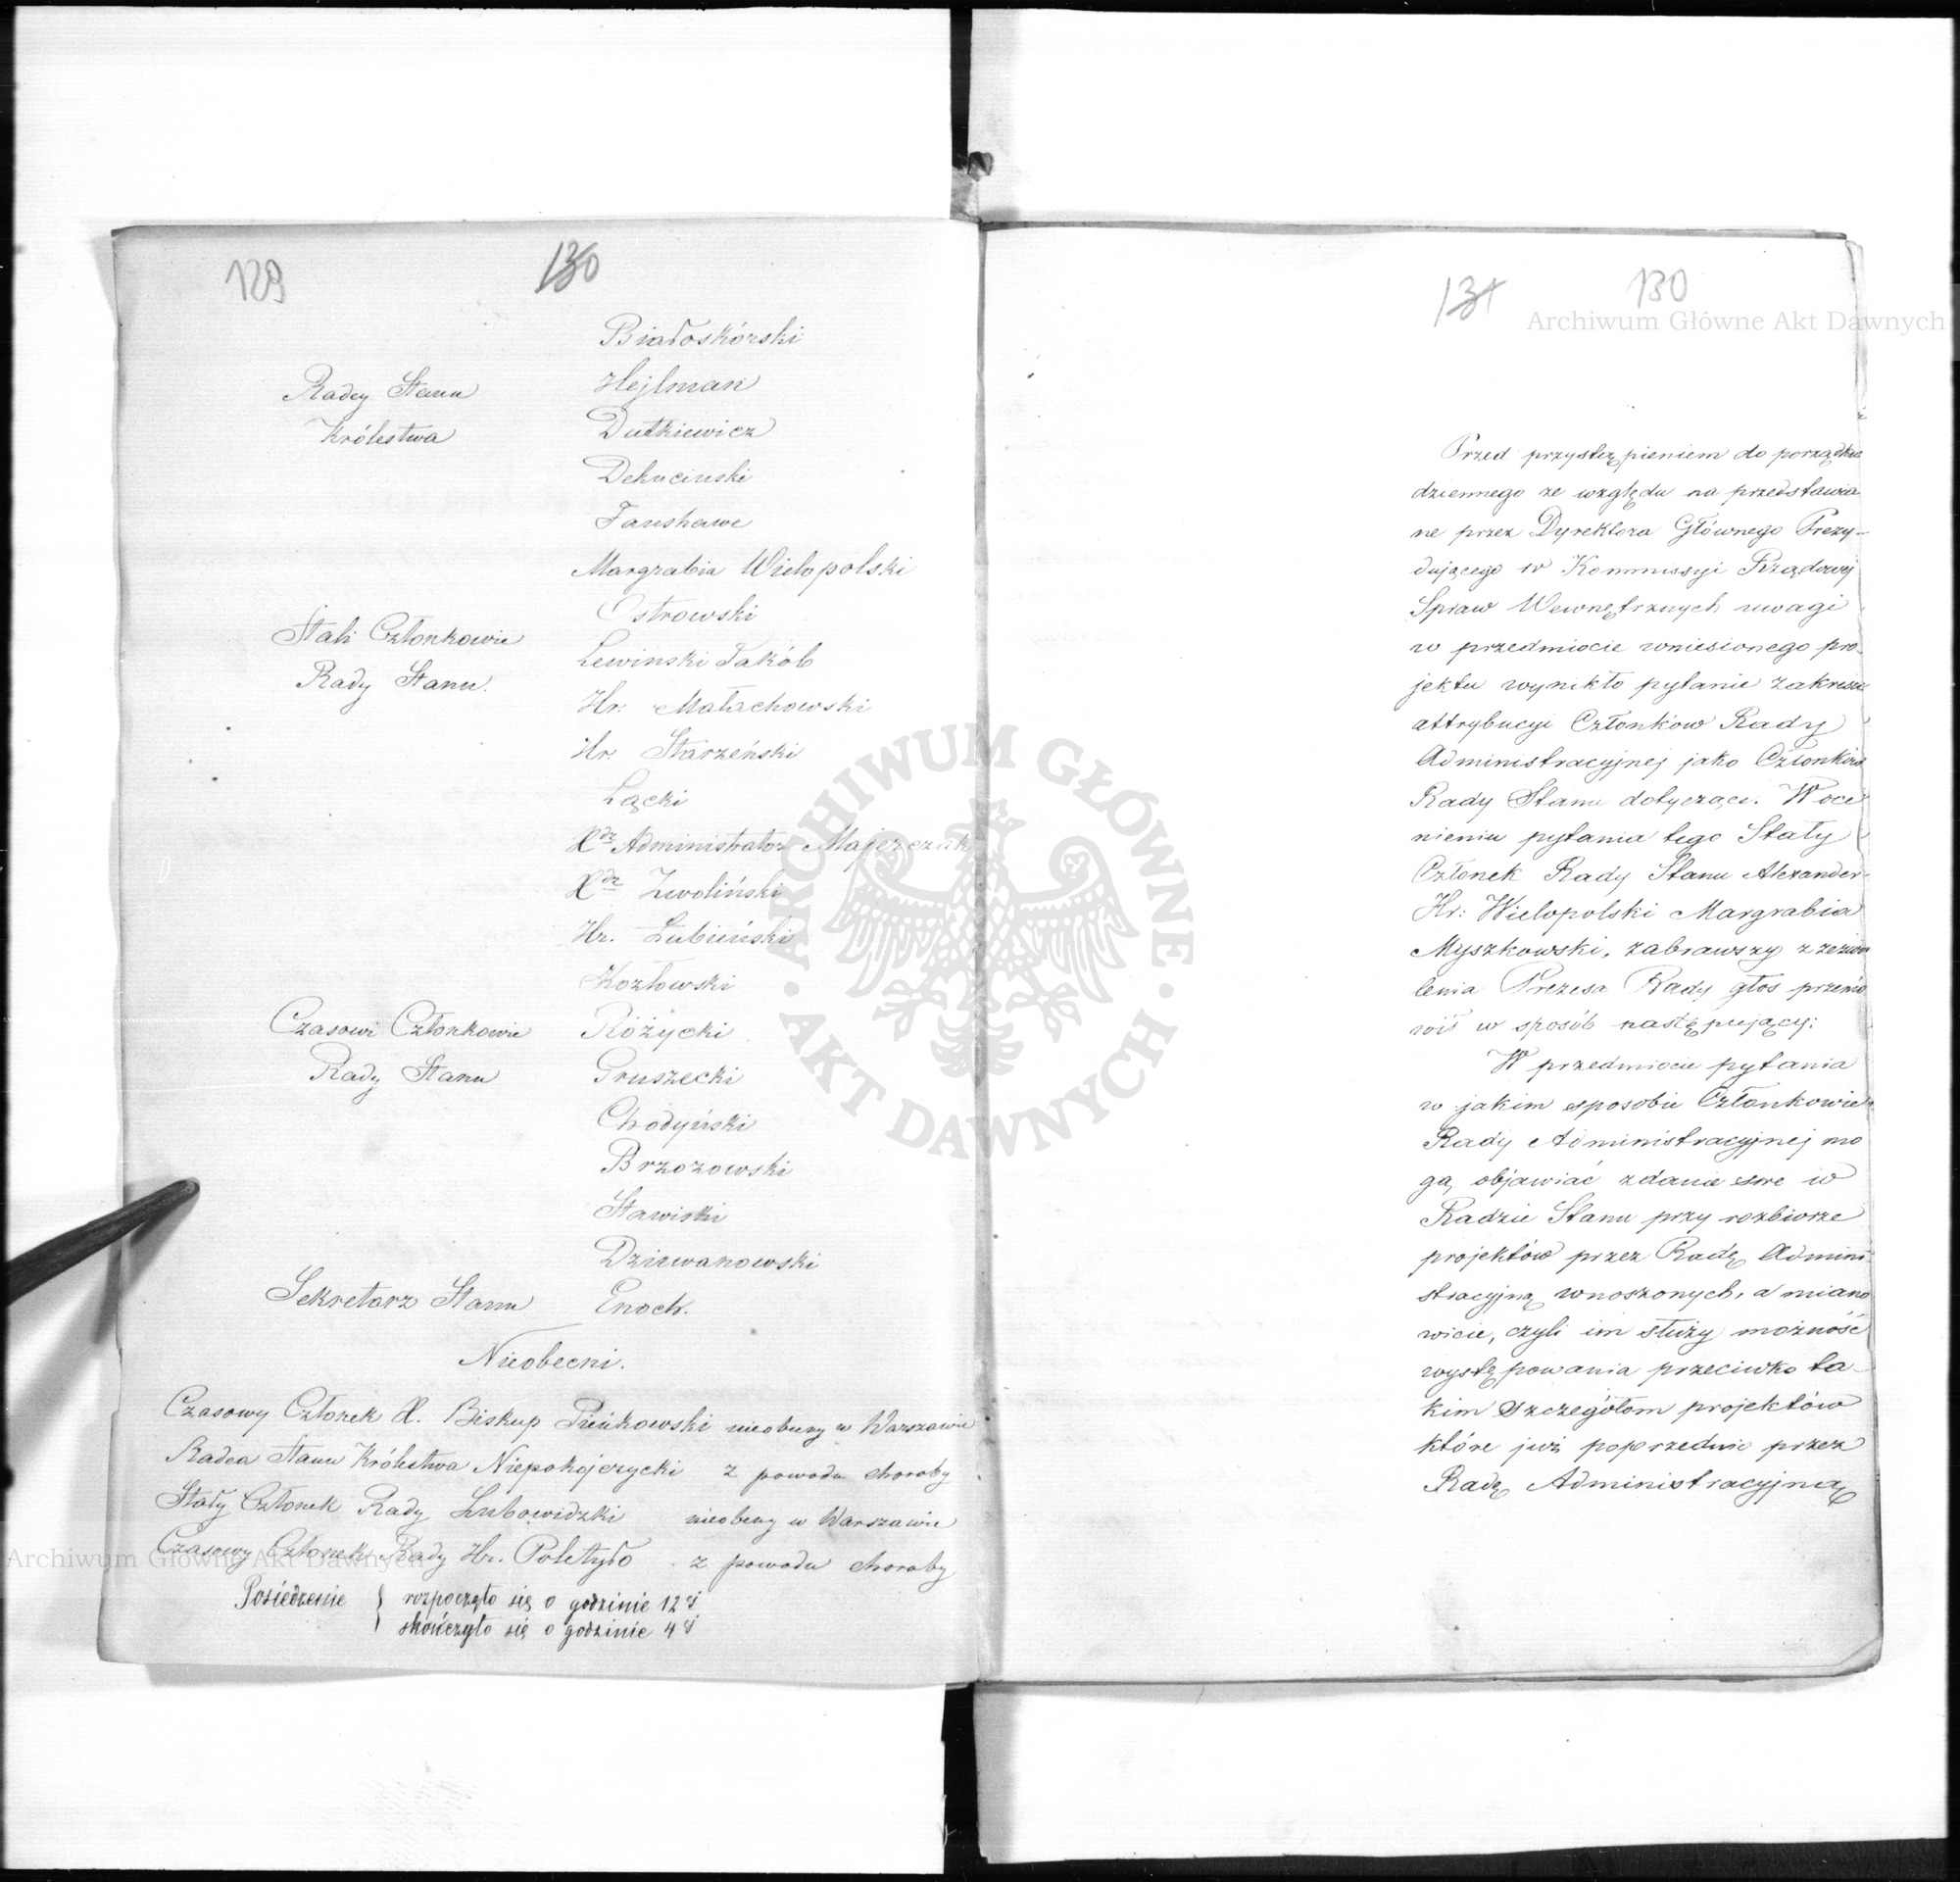 129 130
Białoskórski
Radcy Stanu Hejlman
Królestwa Dutkiewicz
Dekuciński
Fanshawe
Margrabia Wielopolski
Ostrowski
Stali Członkowie
Lewinski Jakób
Rady Stanu.
Hr. Małachowski
Hr. Starzeński
Łącki
Xdz Administrator Majerczak
Xdz Zwoliński
Hr. Łubieński
Kozłowski
Czasowi Członkowie Różycki
Rady Stanu Gruszecki
Chodyński
Brzozowski
Stawiski
Dziewanowski
Sekretarz Stanu Enoch.
Nieobecni.
Czasowy Członek X. Biskup Pieńkowski nieobecny w Warszawie
Radca Stanu Królestwa Niepokojczycki z powodu choroby
Stały Członek Rady Lubowidzki nieobecny w Warszawie
Czasowy Członek Rady Hr. Poletyło z powodu choroby
Posiedzenie } rozpoczęło się o godzinie 12éj
skończyło się o godzinie 4éj
131 130
Przed przystąpieniem do porządku
dziennego ze względu na przedstawia
ne przez Dyrektora Głównego Prezy-
dującego w Kommissyi Rządowej
Spraw Wewnętrznych uwagi
w przedmiocie wniesionego pro-
jektu wynikło pytanie zakresu
attrybucyi Członków Rady
Administracyjnej jako Członków
Rady Stanu dotyczące. W oce
nieniu pytania tego Stały
Członek Rady Stanu Alexander
Hr: Wielopolski Margrabia
Myszkowski, zabrawszy z zezwo
lenia Prezesa Rady głos przemó
wił w sposób następujący:
W przedmiocie pytania
w jakim sposobie Członkowie
Rady Administracyjnej mo
gą objawiać zdanie swe w
Radzie Stanu przy rozbiorze
projektów przez Radę Admini
stracyjną wnoszonych, a miano
wicie, czyli im służy możność
występowania przeciwko ta-
kim szczegółom projektów
które już poprzednio przez
Radę Administracyjną
Archiwum Główne Akt Dawnych
ARCHIWUM GŁÓWNE · AKT DAWNYCH ·
Archiwum Główne Akt Dawnych